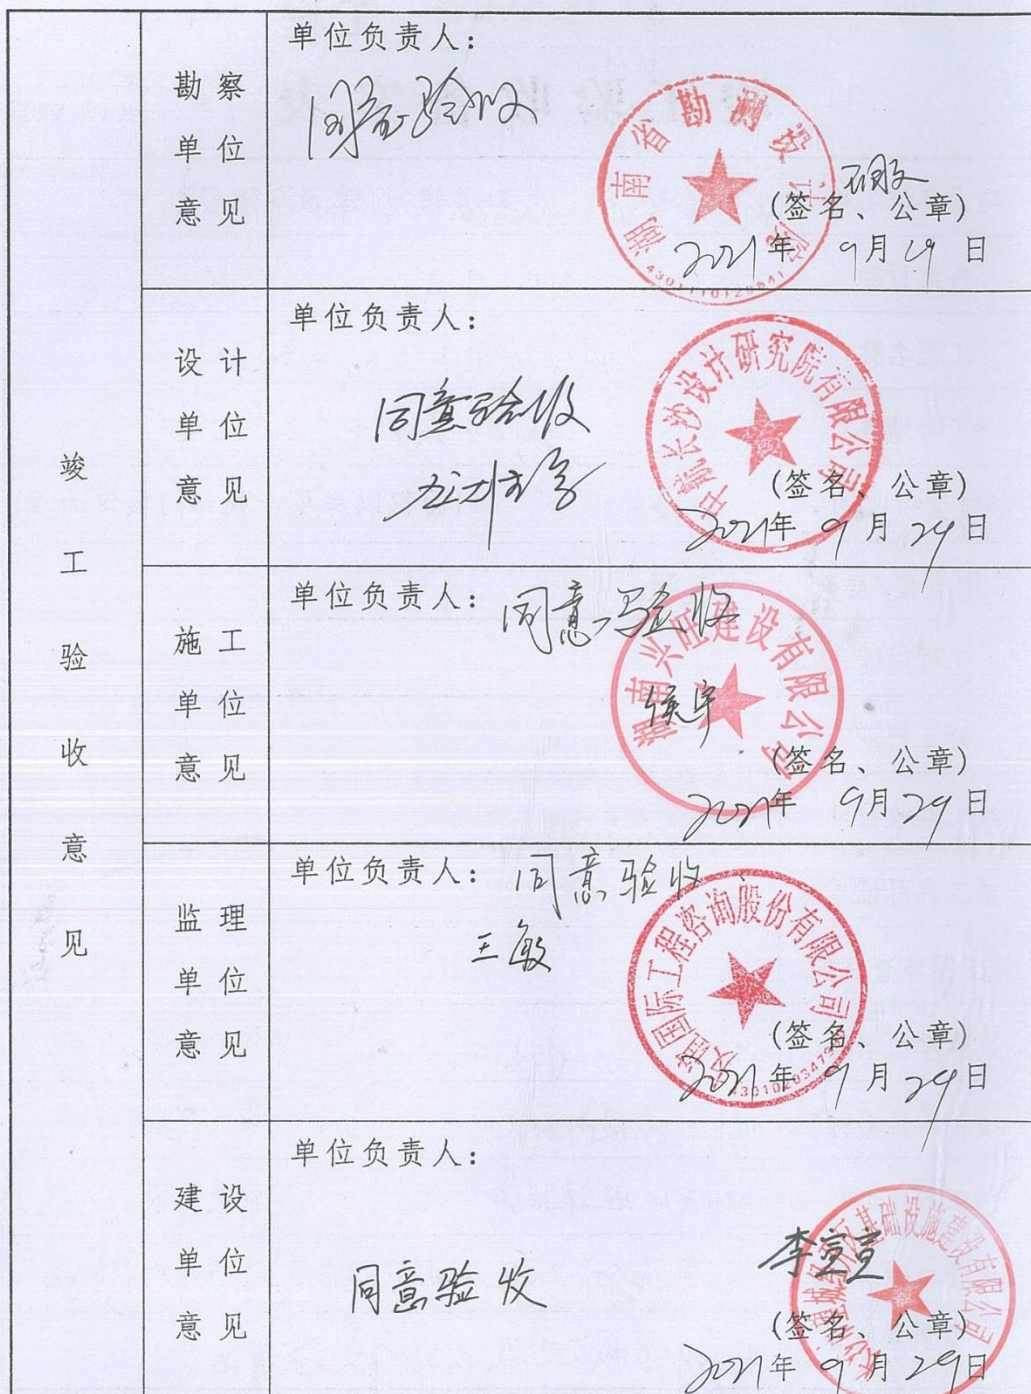 竣工验收意见
勘察单位意见
单位负责人：
同意验收
湖南省勘测设计院
(签名、公章)
2021年 9月29日
设计单位意见
单位负责人：
同意验收
中航长沙设计研究院有限公司
(签名、公章)
2021年 9月29日
施工单位意见
单位负责人：
同意验收
湖南兴旺建设有限公司
侯宇
(签名、公章)
2021年 9月29日
监理单位意见
单位负责人：
同意验收
王敏
国际工程咨询股份有限公司
(签名、公章)
2021年 9月29日
建设单位意见
单位负责人：
同意验收
李宣
基础设施建设有限公司
(签名、公章)
2021年 9月29日